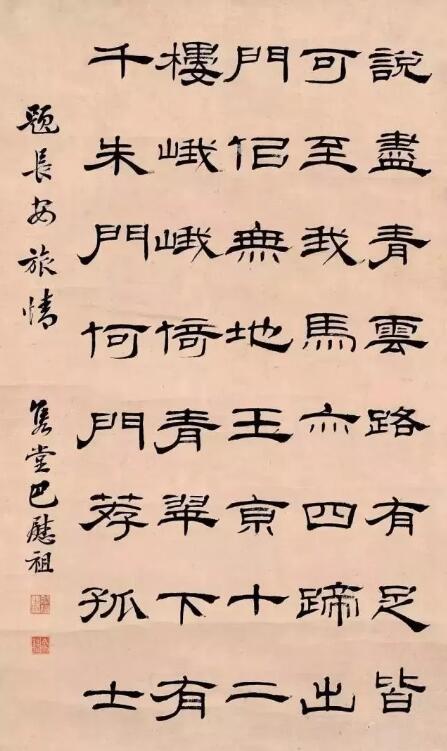 說盡青雲路有足皆
可至我馬亦四蹄出
門似無地王京十二
樓峨峨倚青翠下有
千朱門何門荐孤士
題長安旅情 雋堂巴慰祖